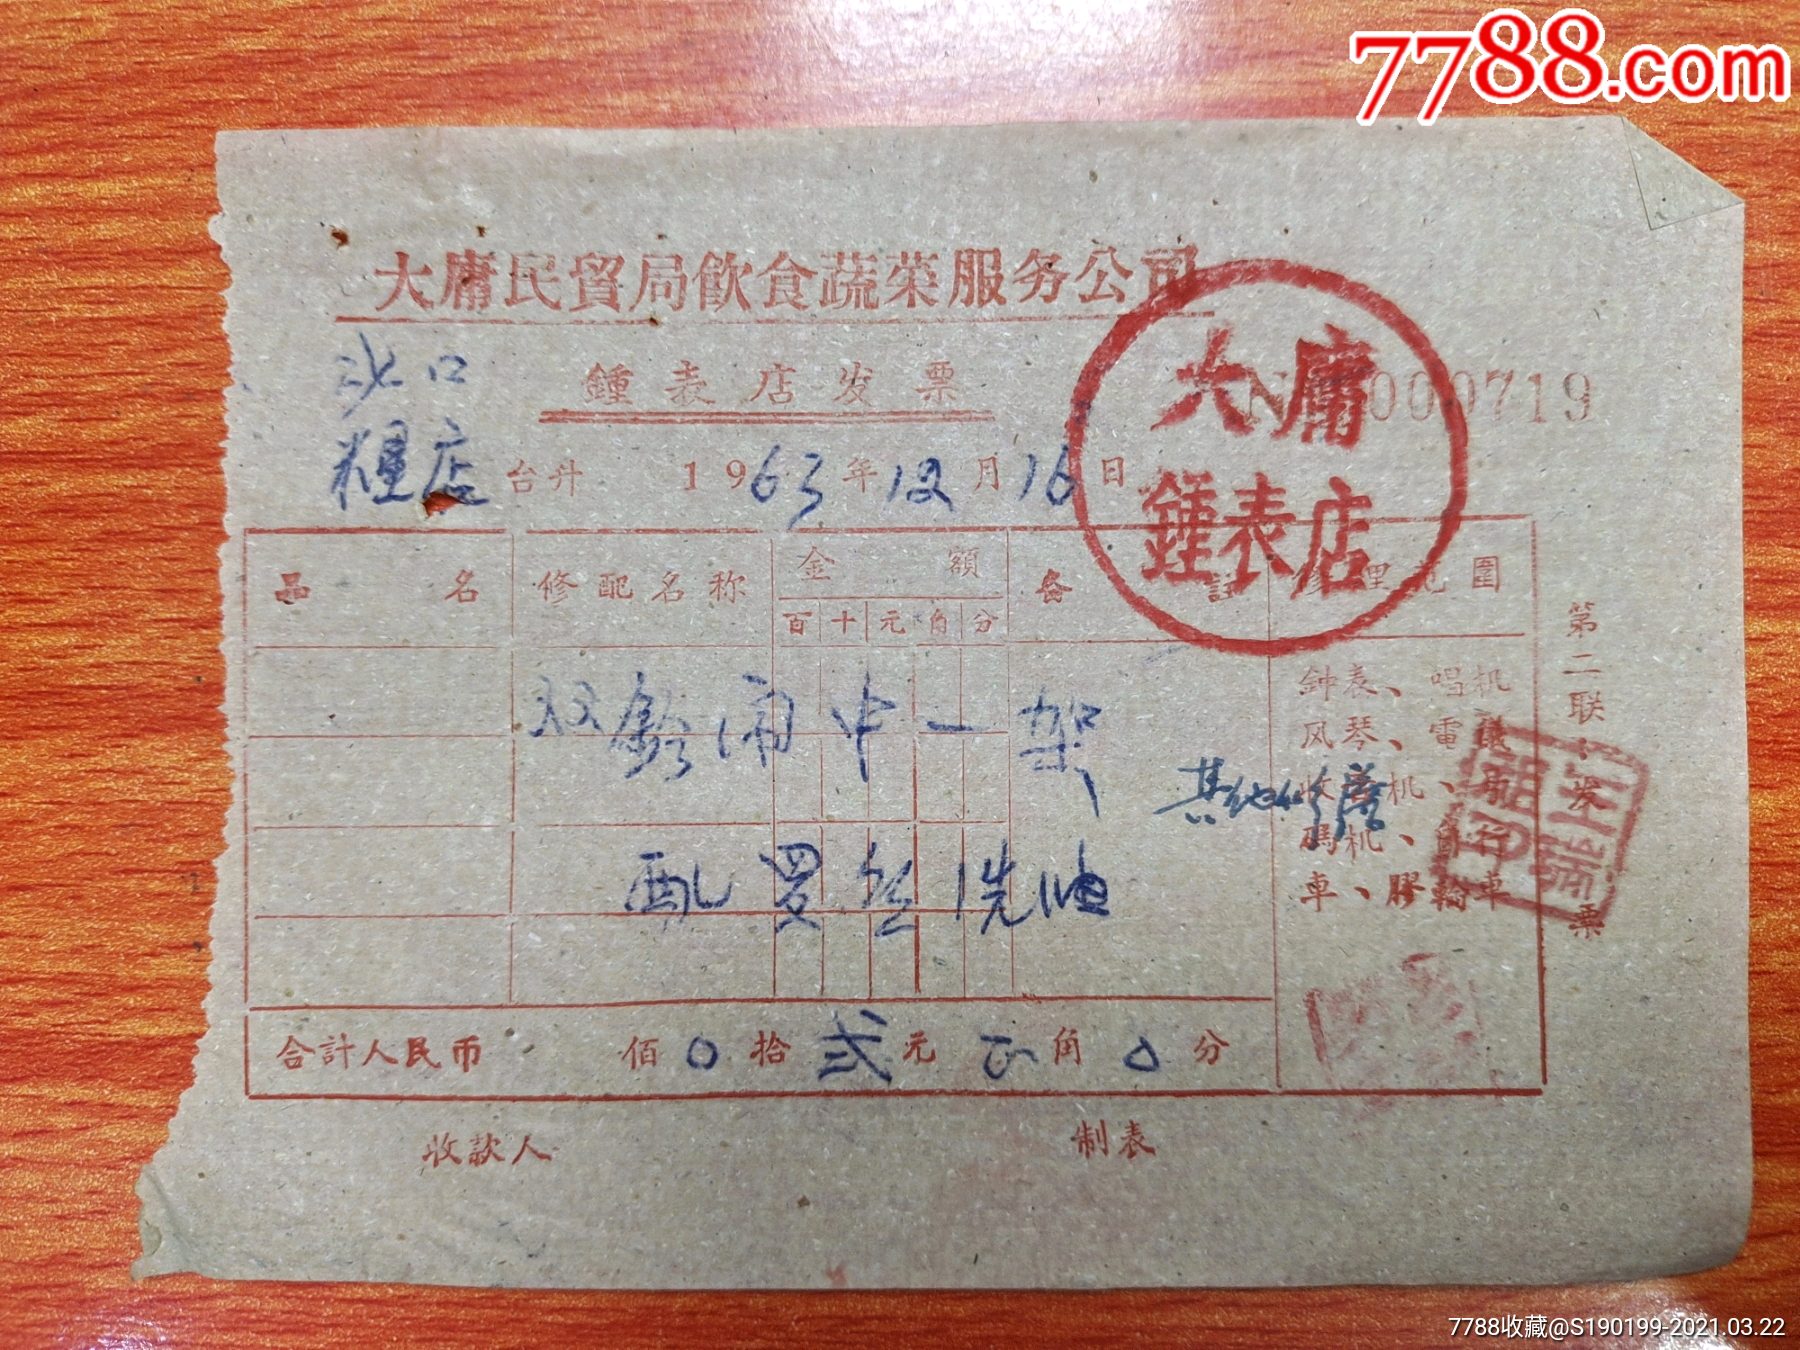 7788.com
大庸民貿局飲食蔬菜服务公司
鍾表店发票
大庸
鍾表店
000719
口
糧店 台升 1963年12月16日
品名 修配名称 金額 备註 修理范圍
百 十 元 角 分
双鈴闹中一架
配罗丝洗油
其他修
鈡表、唱机
风琴、電
收音机、
碼机、自行
車、膠輪車
第二联:发票
合計人民币 佰0拾弍元 角0分
收款人 制表
7788收藏@S190199-2021.03.22